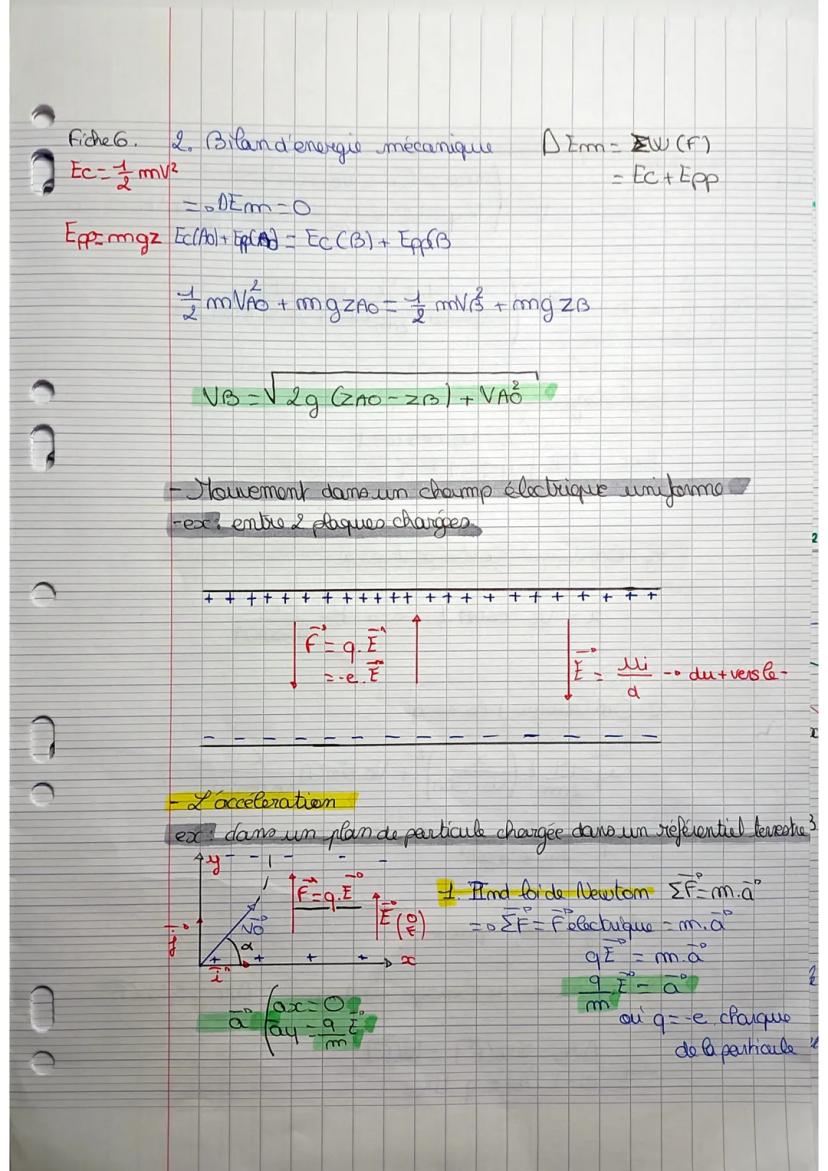 Fiche 6. 2. Bilan d'énergie mécanique ΔEm = ΣW(F)
Ec = 1/2 mV²
= Ec + Epp
=> DEm = 0
Epp = mgz Ec(A0) + Epp(A0) = Ec(B) + Epp(B
1/2 mVA0² + mgzA0 = 1/2 mVB² + mgzB
VB = √(2g (zA0 - zB) + VA0²)
- Mouvement dans un champ électrique uniforme
- ex : entre 2 plaques chargées.
+ + + + + + + + + + + + + + + + + + + + + + +
F⃗ = q.E⃗
= -e.E⃗
E⃗ = Ui/d → du + vers le -
- - - - - - - - - - - - - -
- L'accélération
ex : dans un plan de particule chargée dans un référentiel terrestre
y - - - - -
F⃗ = q.E⃗
E⃗ (0 E)
V0⃗
α
j⃗
i⃗
+ + + + x
1. IInd loi de Newton ΣF⃗ = m.a⃗
=> ΣF⃗ = F⃗ électrique = m.a⃗
qE⃗ = m.a⃗
q/m E⃗ = a⃗
où q = -e charque
de la particule
a⃗ (ax = 0
ay = q/m E